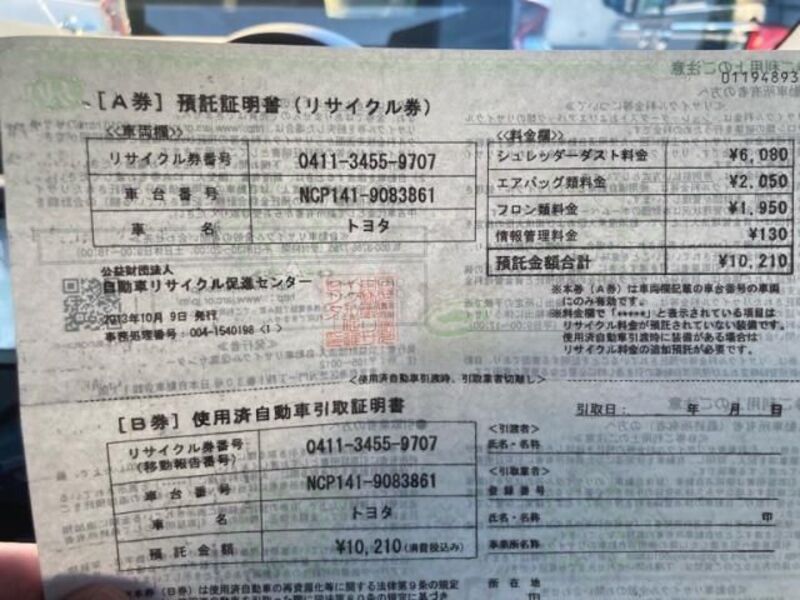 01194893
[A券] 預託証明書(リサイクル券)
<<車両欄>>
リサイクル券番号 0411-3455-9707
車台番号 NCP141-9083861
車名 トヨタ
<<料金欄>>
シュレッダーダスト料金 ¥6,080
エアバッグ類料金 ¥2,050
フロン類料金 ¥1,950
情報管理料金 ¥130
預託金額合計 ¥10,210
公益財団法人
自動車リサイクル促進センター
2013年10月 9日 発行
事務処理番号:004-1540198 <1>
※本券(A券)は車両欄記載の車台番号の車両
にのみ有効です。
※料金欄で「*****」と表示されている項目は
リサイクル料金が預託されていない装備です。
使用済自動車引渡時に装備がある場合は
リサイクル料金の追加預託が必要です。
<使用済自動車引渡時、引取業者切離し>
[B券] 使用済自動車引取証明書
引取日: 年 月 日
リサイクル券番号
(移動報告番号) 0411-3455-9707
車台番号 NCP141-9083861
車名 トヨタ
預託金額 ¥10,210(消費税込み)
<引渡者>
氏名・名称
<引取業者>
登録番号
氏名・名称 印
事業所名称
所在地
本券(B券)は使用済自動車の再資源化等に関する法律第9条の規定